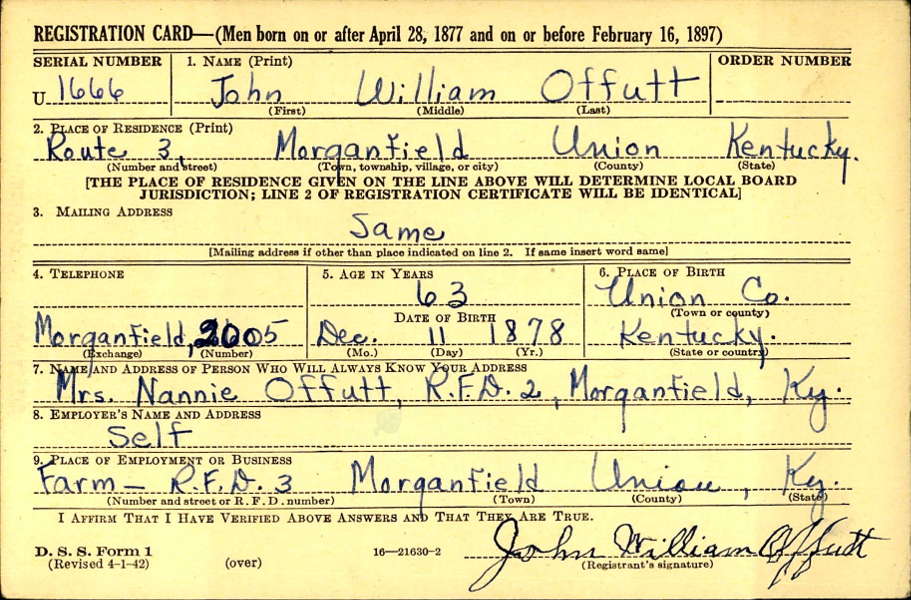 REGISTRATION CARD—(Men born on or after April 28, 1877 and on or before February 16, 1897)
SERIAL NUMBER 1. NAME (Print) ORDER NUMBER
U 1666 John William Offutt
(First) (Middle) (Last)
2. PLACE OF RESIDENCE (Print)
Route 3, Morganfield Union Kentucky.
(Number and street) (Town, township, village, or city) (County) (State)
[THE PLACE OF RESIDENCE GIVEN ON THE LINE ABOVE WILL DETERMINE LOCAL BOARD
JURISDICTION; LINE 2 OF REGISTRATION CERTIFICATE WILL BE IDENTICAL]
3. MAILING ADDRESS
Same
[Mailing address if other than place indicated on line 2. If same insert word same]
4. TELEPHONE 5. AGE IN YEARS 6. PLACE OF BIRTH
63 Union Co.
DATE OF BIRTH (Town or county)
Morganfield, 2005 Dec. 11 1878 Kentucky.
(Exchange) (Number) (Mo.) (Day) (Yr.) (State or country)
7. NAME AND ADDRESS OF PERSON WHO WILL ALWAYS KNOW YOUR ADDRESS
Mrs. Nannie Offutt, R.F.D. 2, Morganfield, Ky.
8. EMPLOYER'S NAME AND ADDRESS
Self
9. PLACE OF EMPLOYMENT OR BUSINESS
Farm — R.F.D. 3 Morganfield Union, Ky.
(Number and street or R. F. D. number) (Town) (County) (State)
I AFFIRM THAT I HAVE VERIFIED ABOVE ANSWERS AND THAT THEY ARE TRUE.
John William Offutt
D. S. S. Form 1 16—21630-2
(Revised 4-1-42) (over) (Registrant's signature)